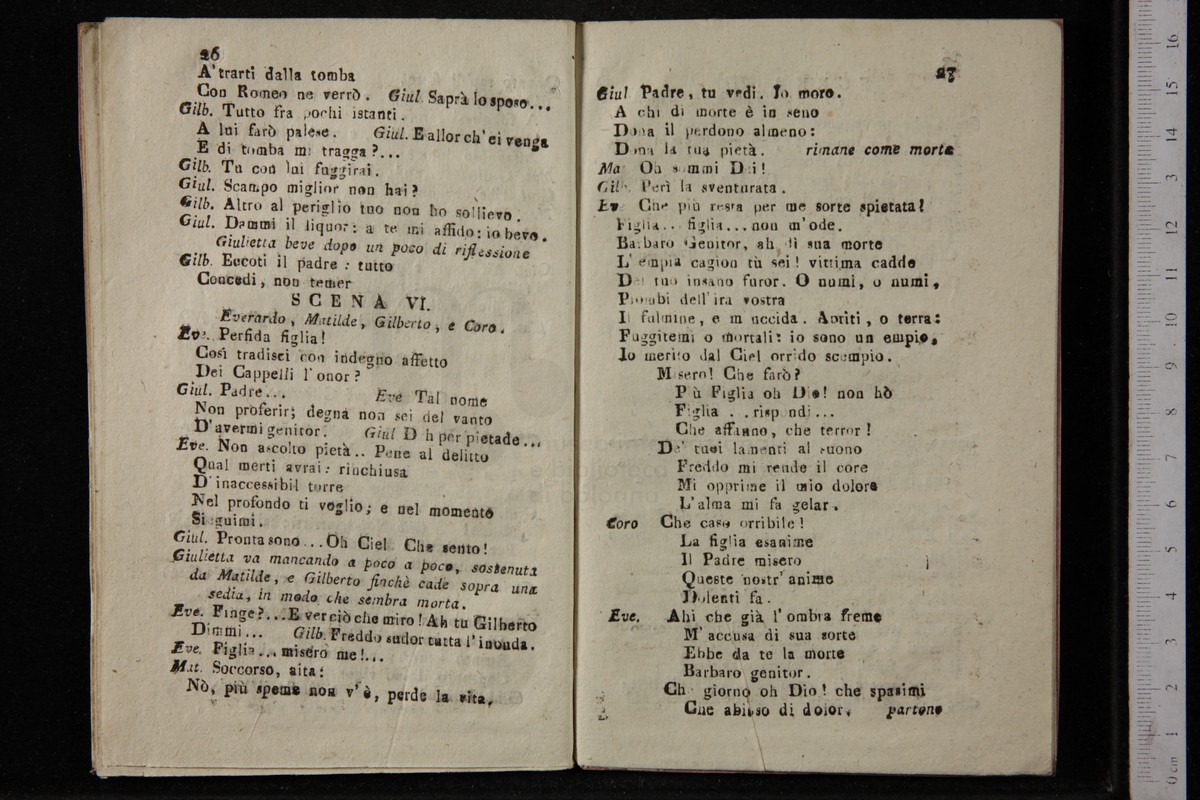 26
A' trarti dalla tomba
Con Romeo ne verrò. Giul. Saprà lo sposo...
Gilb. Tutto fra pochi istanti.
A lui farò palese. Giul. E allor ch' ei venga
E di tomba mi tragga?...
Gilb. Tu con lui fuggirai.
Giul. Scampo miglior non hai?
Gilb. Altro al periglio tuo non ho sollievo.
Giul. Dammi il liquor: a te mi affido: io bevo.
Giulietta beve dopo un poco di riflessione
Gilb. Eccoti il padre: tutto
Concedi, non temer
SCENA VI.
Everardo, Matilde, Gilberto, e Coro.
Eve. Perfida figlia!
Così tradisci con indegno affetto
Dei Cappelli l' onor?
Giul. Padre... Eve Tal nome
Non proferir; degna non sei del vanto
D' avermi genitor. Giul D h per pietade...
Eve. Non ascolto pietà.. Pene al delitto
Qual merti avrai: rinchiusa
D' inaccessibil torre
Nel profondo ti voglio; e nel momento
Sieguimi.
Giul. Pronta sono... Oh Ciel. Che sento!
Giulietta va mancando a poco a poco, sostenuta
da Matilde, e Gilberto finchè cade sopra una
sedia, in modo che sembra morta.
Eve. Finge?... E ver ciò che miro! Ah tu Gilberto
Dimmi... Gilb. Freddo sudor tutta l' inonda.
Eve. Figlia... misero me!...
Mat. Soccorso, aita:
Nò, più speme non v' è, perde la vita.
27
Giul Padre, tu vedi. Io moro.
A chi di morte è in seno
Dona il perdono almeno:
Dona la tua pietà. rimane come morta
Ma Oh sommi Dei!
Gilb. Perì la sventurata.
Ev Che più resta per me sorte spietata!
Figlia.. figlia... non m' ode.
Barbaro Genitor, ah di sua morte
L' empia cagion tù sei! vittima cadde
Del tuo insano furor. O numi, o numi,
Piombi dell' ira vostra
Il fulmine, e m uccida. Apriti, o terra:
Fuggitemi o mortali: io sono un empio,
Io merito dal Ciel orrido scempio.
Misero! Che farò?
Più Figlia oh Dio! non hò
Figlia . . rispondi...
Che affanno, che terror!
De' tuoi lamenti al suono
Freddo mi rende il core
Mi opprime il mio dolore
L' alma mi fa gelar.
Coro Che caso orribile!
La figlia esanime
Il Padre misero
Queste nostr' anime
Dolenti fa.
Eve. Ahi che già l' ombra freme
M' accusa di sua sorte
Ebbe da te la morte
Barbaro genitor.
Ch giorno oh Dio! che spasimi
Che abisso di dolor. partono
0 cm 1 2 3 4 5 6 7 8 9 10 11 12 13 14 15 16